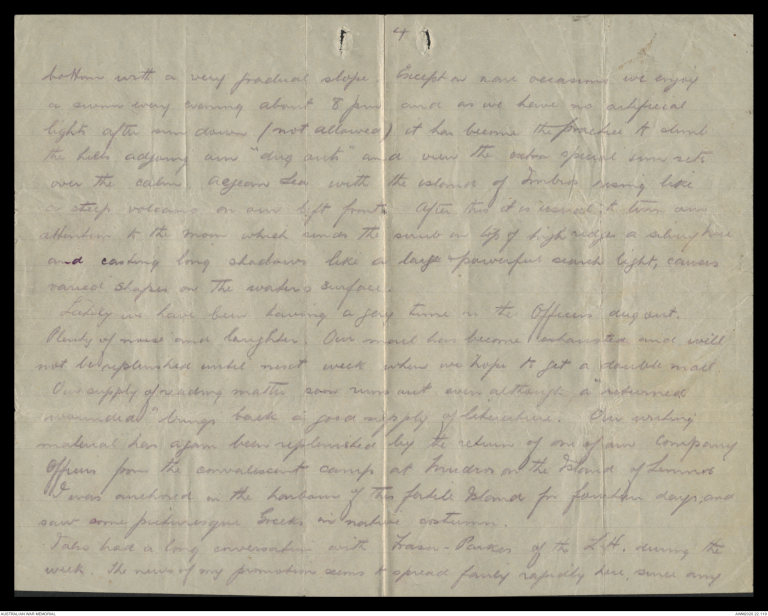 4
bottom with a very gradual slope. Except on rare occasions we enjoy
a swim every evening about 8 pm and as we have no artificial
lights after sun down (not allowed) it has become the practice to climb
the hills adjoing our "dug outs" and view the extra special sun sets
over the calm Aegean Sea with the island of Imbros rising like
a steep volcano on our left front. After this it is usual to turn our
attention to the moon which sends the scrub on top of high ridges a silvery hue
and casting long shadows like a large & powerful search light, causes
varied shapes on the water's surface.
Lately we have been having a gay time in the Officers dug out.
Plenty of noise and laughter. Our mail has become exhausted and will
not be replenished until next week when we hope to get a double mail.
Our supply of reading matter soon runs out even although a "returned
wounded" brings back a good supply of literature. Our writing
material has again been replenished by the return of one of our Company
Officers from the convalescent camp at Mudros on the Island of Lemnos
I was anchored in the harbour of this fertile Island for fourteen days, and
saw some picturesque Greeks in native costume.
I also had a long conversation with Fraser-Parkes of the L.H. during the
week. The news of my promotion seems to spread fairly rapidly here, since any
AUSTRALIAN WAR MEMORIAL